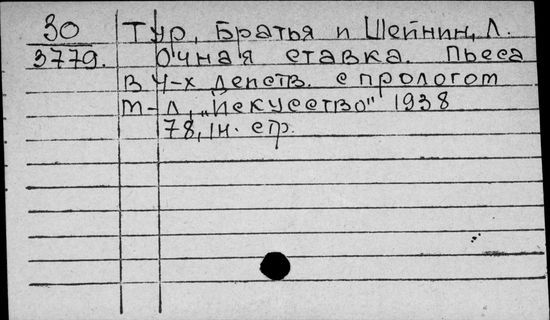 30 Тур, Братья и Шейнин, Л.
3779. Очная ставка. Пьеса
в 4-х действ. с прологом
М-Л, „Искусство" 1938
78, 1н. стр.